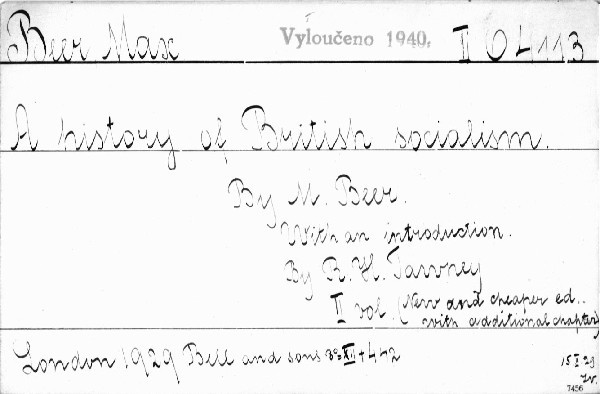 Beer Max Vyloučeno 1940. II O 4113
A history of British socialism.
By M. Beer.
With an introduction.
By R. H. Tawney
II vol (New and cheaper ed..
with additional chapter)
London 1929 Bell and sons 8° XII + 442
15.I.29
7456